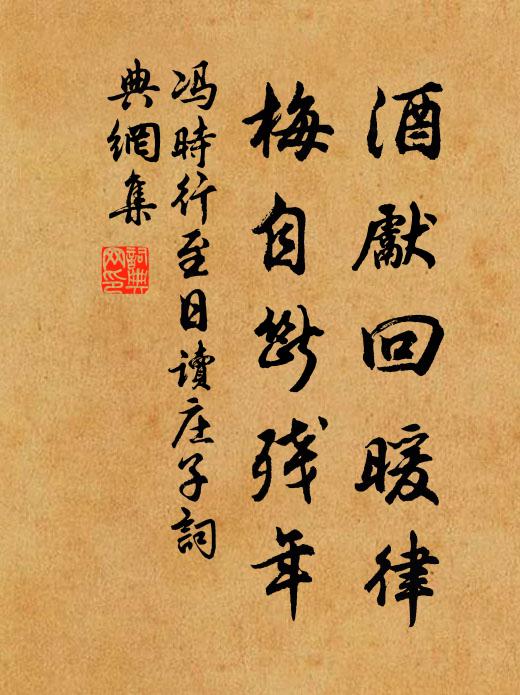 酒獻回暖律
梅自斷残年
冯時行至日讀庄子詞
典網集
詞典
网印